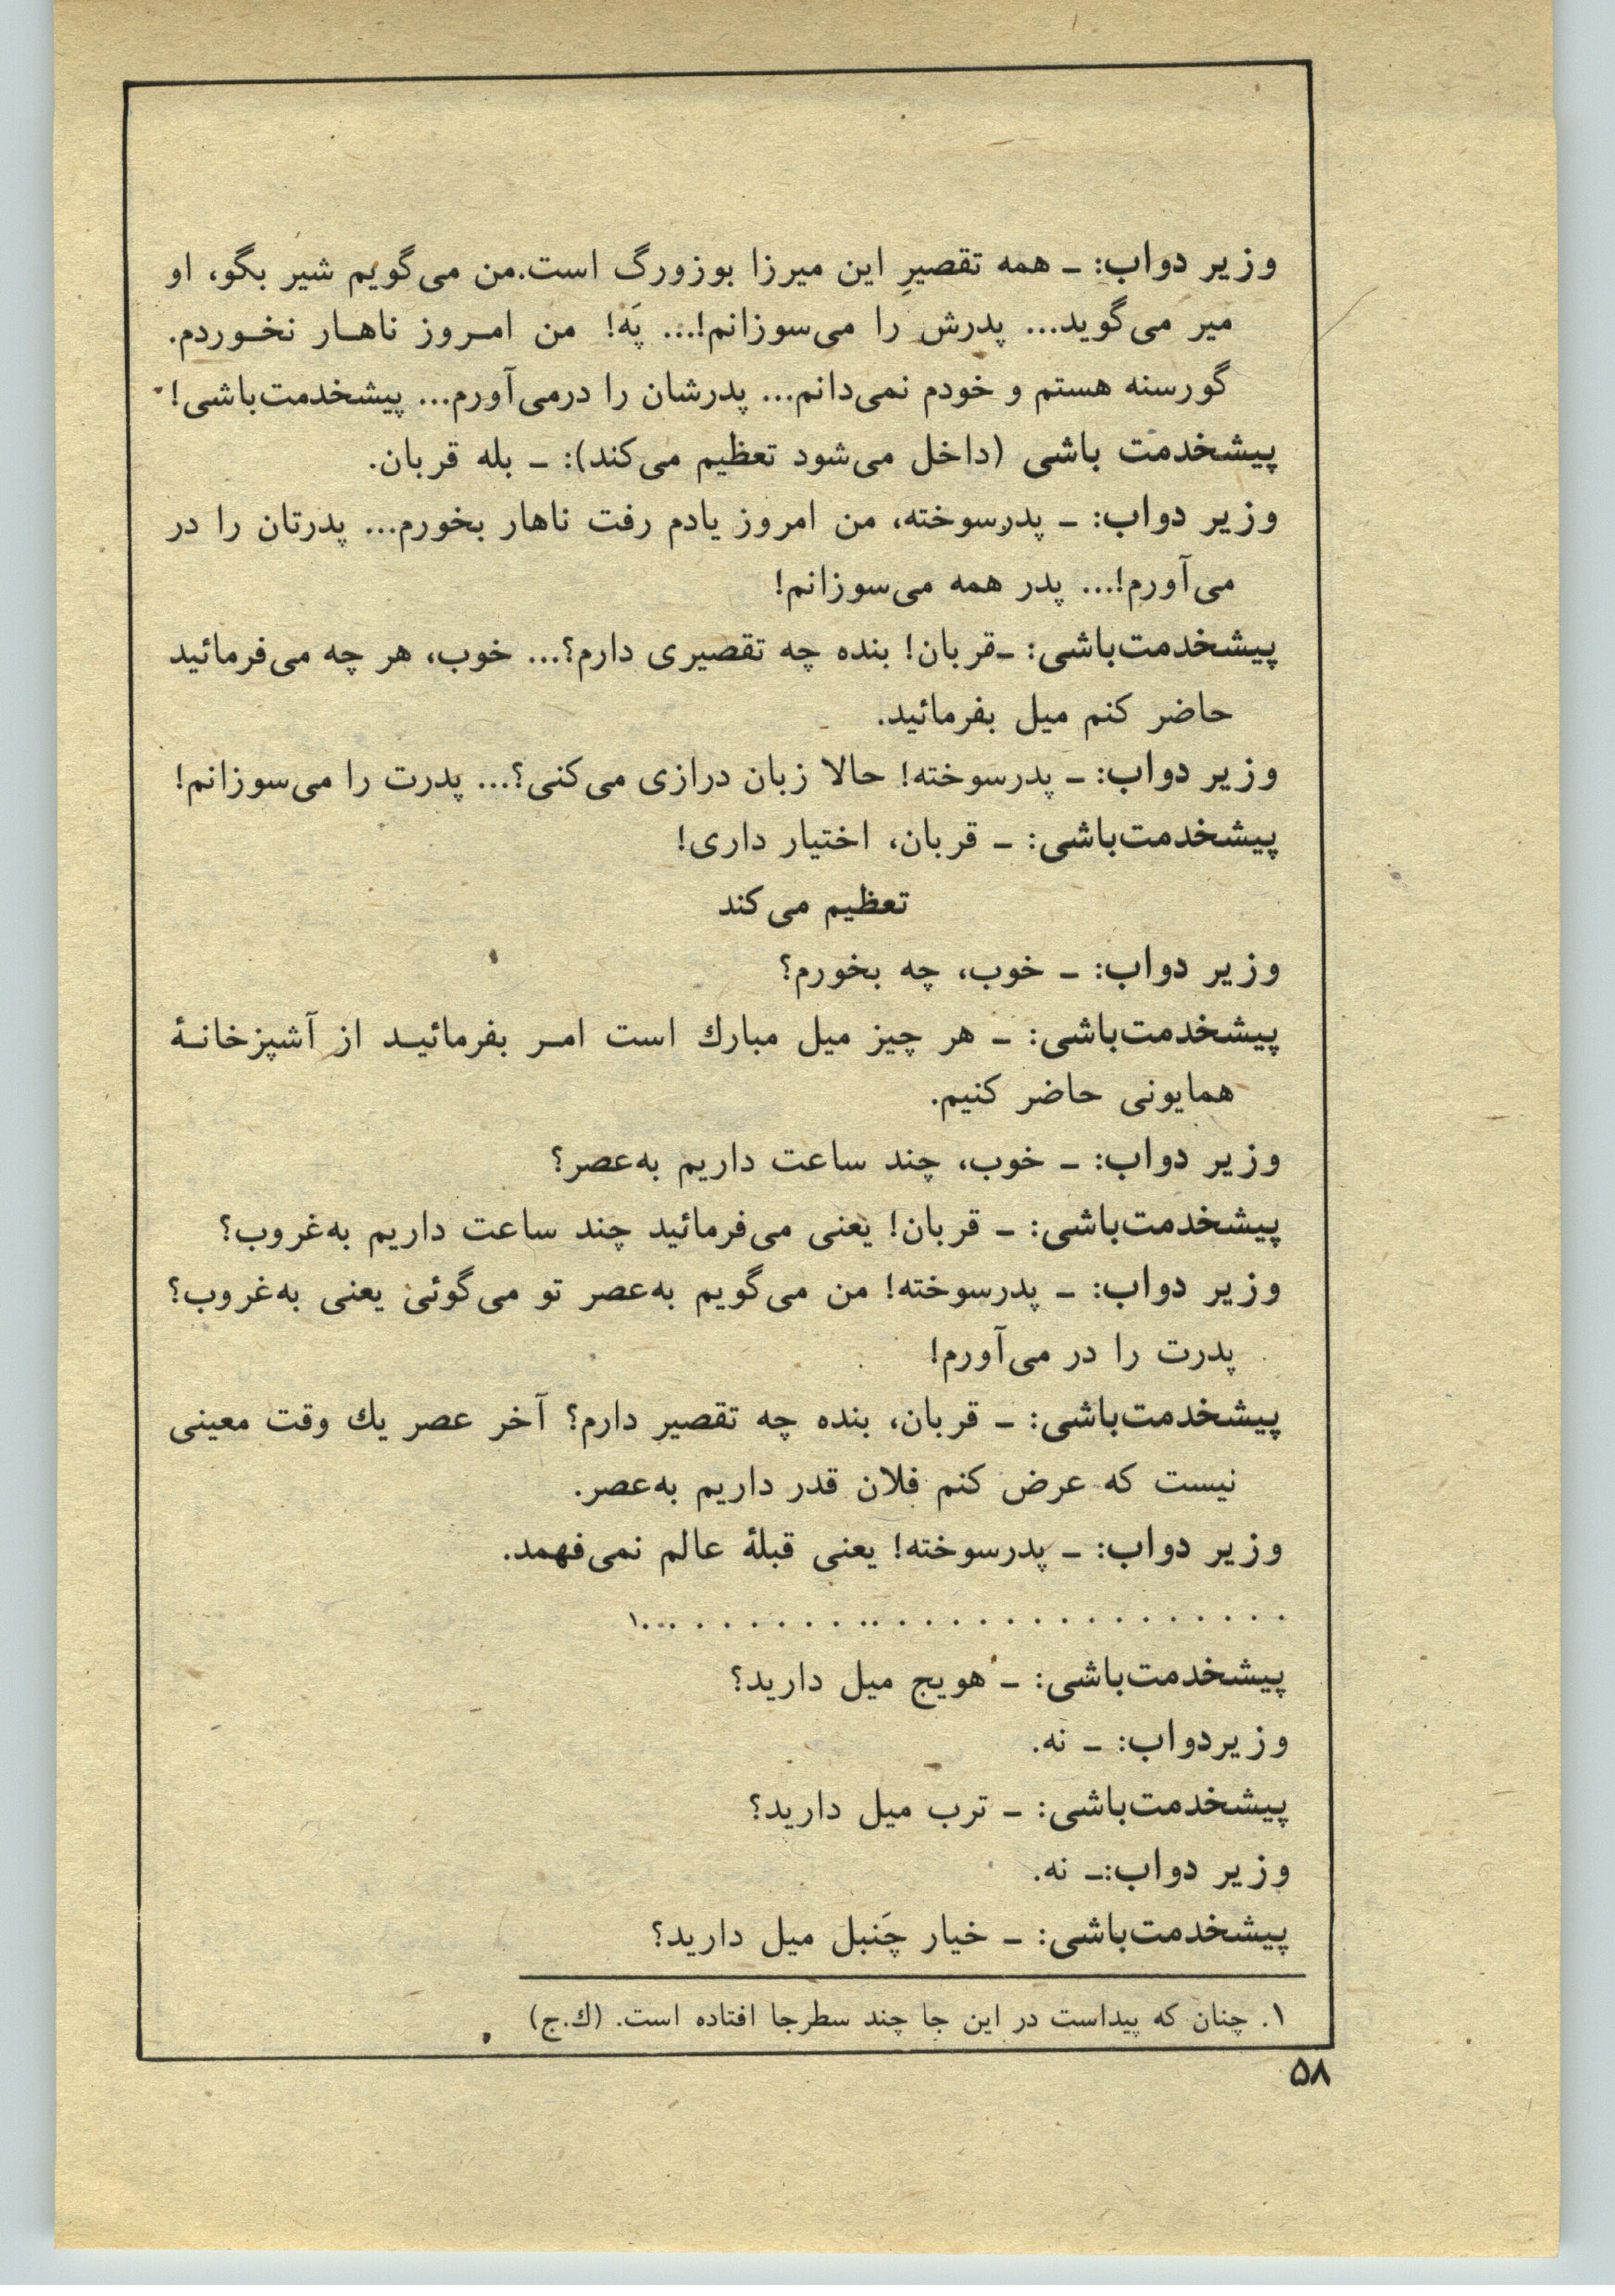 وزیر دواب: ـ همه تقصیرِ این میرزا بوزورگ است.من می‌گویم شیر بگو، او
میر می‌گوید... پدرش را می‌سوزانم!... پَه! من امـروز ناهـار نخـوردم.
گورسنه هستم و خودم نمی‌دانم... پدرشان را درمی‌آورم... پیشخدمت‌باشی!
پیشخدمت باشی (داخل می‌شود تعظیم می‌کند): ـ بله قربان.
وزیر دواب: ـ پدرسوخته، من امروز یادم رفت ناهار بخورم... پدرتان را در
می‌آورم!... پدر همه می‌سوزانم!
پیشخدمت‌باشی: ـقربان! بنده چه تقصیری دارم؟... خوب، هر چه می‌فرمائید
حاضر کنم میل بفرمائید.
وزیر دواب: ـ پدرسوخته! حالا زبان درازی می‌کنی؟... پدرت را می‌سوزانم!
پیشخدمت‌باشی: ـ قربان، اختیار داری!
تعظیم می‌کند
وزیر دواب: ـ خوب، چه بخورم؟
پیشخدمت‌باشی: ـ هر چیز میل مبارك است امـر بفرمائیـد از آشپزخانـهٔ
همایونی حاضر کنیم.
وزیر دواب: ـ خوب، چند ساعت داریم به‌عصر؟
پیشخدمت‌باشی: ـ قربان! یعنی می‌فرمائید چند ساعت داریم به‌غروب؟
وزیر دواب: ـ پدرسوخته! من می‌گویم به‌عصر تو می‌گوئی یعنی به‌غروب؟
پدرت را در می‌آورم!
پیشخدمت‌باشی: ـ قربان، بنده چه تقصیر دارم؟ آخر عصر یك وقت معینی
نیست که عرض کنم فلان قدر داریم به‌عصر.
وزیر دواب: ـ پدرسوخته! یعنی قبلهٔ عالم نمی‌فهمد.
. . . . . . . . . . . . . . . .. . . . . . . . ...۱
پیشخدمت‌باشی: ـ هویج میل دارید؟
وزیردواب: ـ نه.
پیشخدمت‌باشی: ـ ترب میل دارید؟
وزیر دواب:ـ نه.
پیشخدمت‌باشی: ـ خیار چَنبل میل دارید؟
۱. چنان که پیداست در این جا چند سطرجا افتاده است. (ك.ج)
۵۸